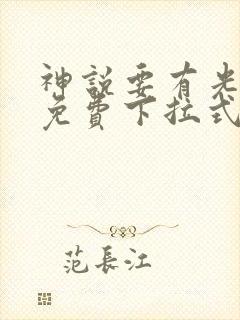 神說要有光
免費下拉式
范長江